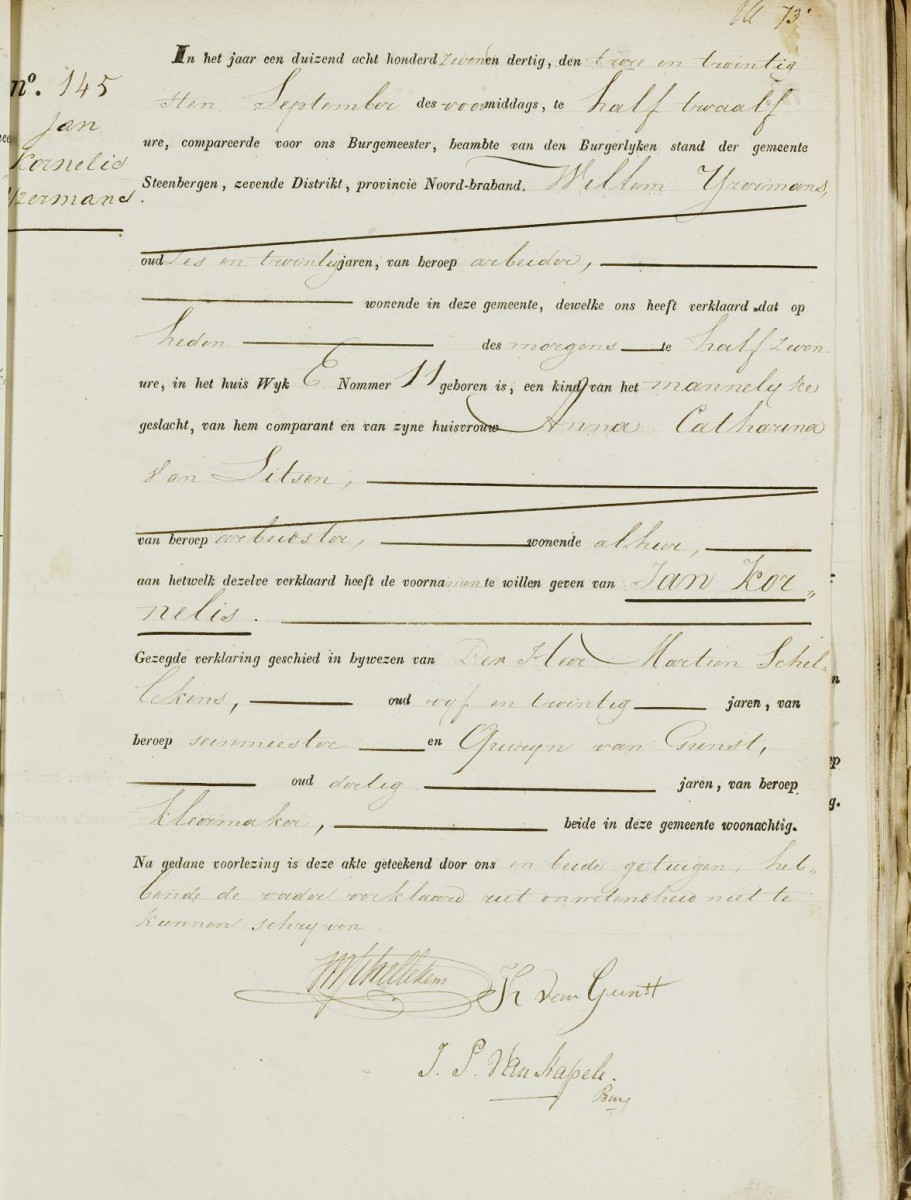 73
n°. 145
Jan
Kornelis
Yzermans
In het jaar een duizend acht honderd zeven en dertig, den twee en twintig
sten September des voormiddags, te half twaalf
ure, compareerde voor ons Burgemeester, beambte van den Burgerlyken stand der gemeente
Steenbergen, zevende Distrikt, provincie Noord-braband. Willem Yzermans,
oud zes en twintig jaren, van beroep arbeider,
wonende in deze gemeente, dewelke ons heeft verklaard dat op
heden des morgens te half zeven
ure, in het huis Wyk E Nommer 11 geboren is, een kind van het mannelyke
geslacht, van hem comparant en van zyne huisvrouw Anna Catharina
Van Sitsen,
van beroep arbeidster, wonende alhier,
aan hetwelk dezelve verklaard heeft de voornamen te willen geven van Jan Kor„
nelis.
Gezegde verklaring geschied in bywezen van Den Heer Martien Schel„
lekens, oud vyf en twintig jaren, van
beroep seinmeester en Quiryn van Gunst,
oud dertig jaren, van beroep
kleermaker, beide in deze gemeente woonachtig.
Na gedane voorlezing is deze akte geteekend door ons en beide getuigen, heb„
bende de vader verklaard uit onwetendheid niet te
kunnen schryven
Schellekens
van Gunst
J. P. Van Kapele.
Burg